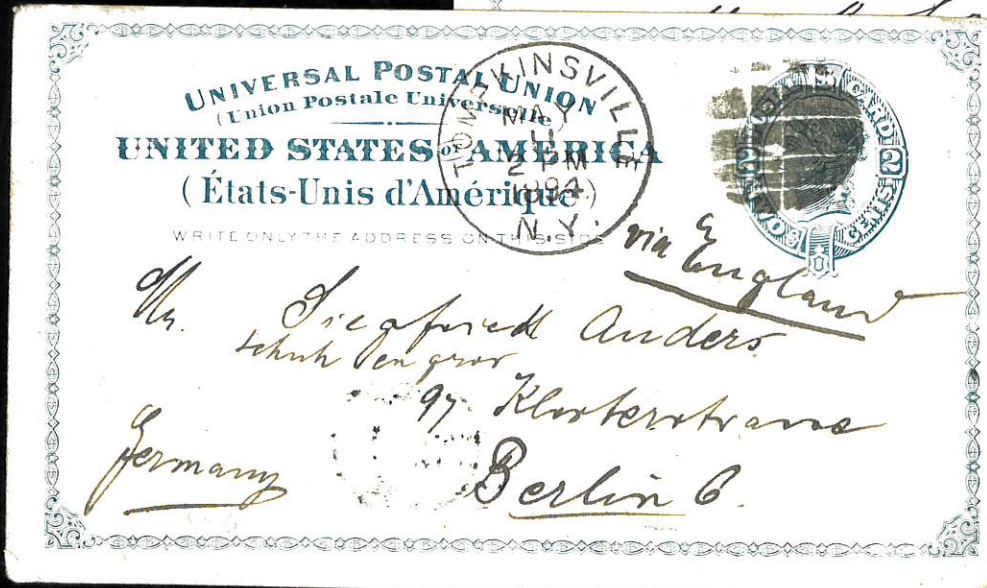 UNIVERSAL POSTAL UNION
(Union Postale Universelle)
UNITED STATES OF AMERICA
(États-Unis d'Amérique)
WRITE ONLY THE ADDRESS ON THIS SIDE
TOMPKINSVILLE
MAY
11
2 PM
1894
N.Y.
2 2
via England
Mr. Siegfried Anders
Schuh en gros
97. Klosterstrasse
Berlin C.
Germany